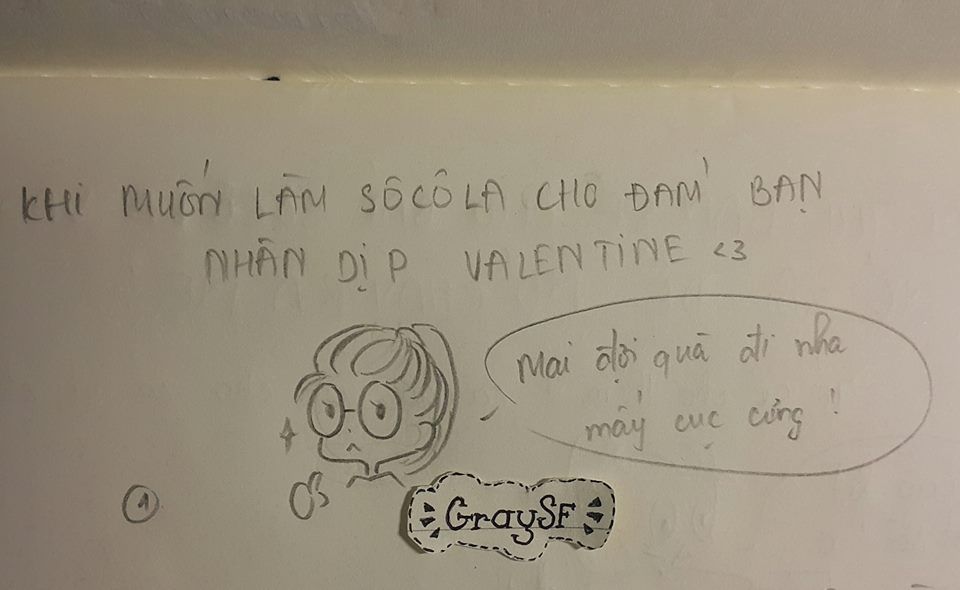 KHI MUỐN LÀM SÔCÔLA CHO ĐÁM BẠN
NHÂN DỊP VALENTINE <3
Mai đợi quà đi nha
mấy cục cưng !
1
GraySF